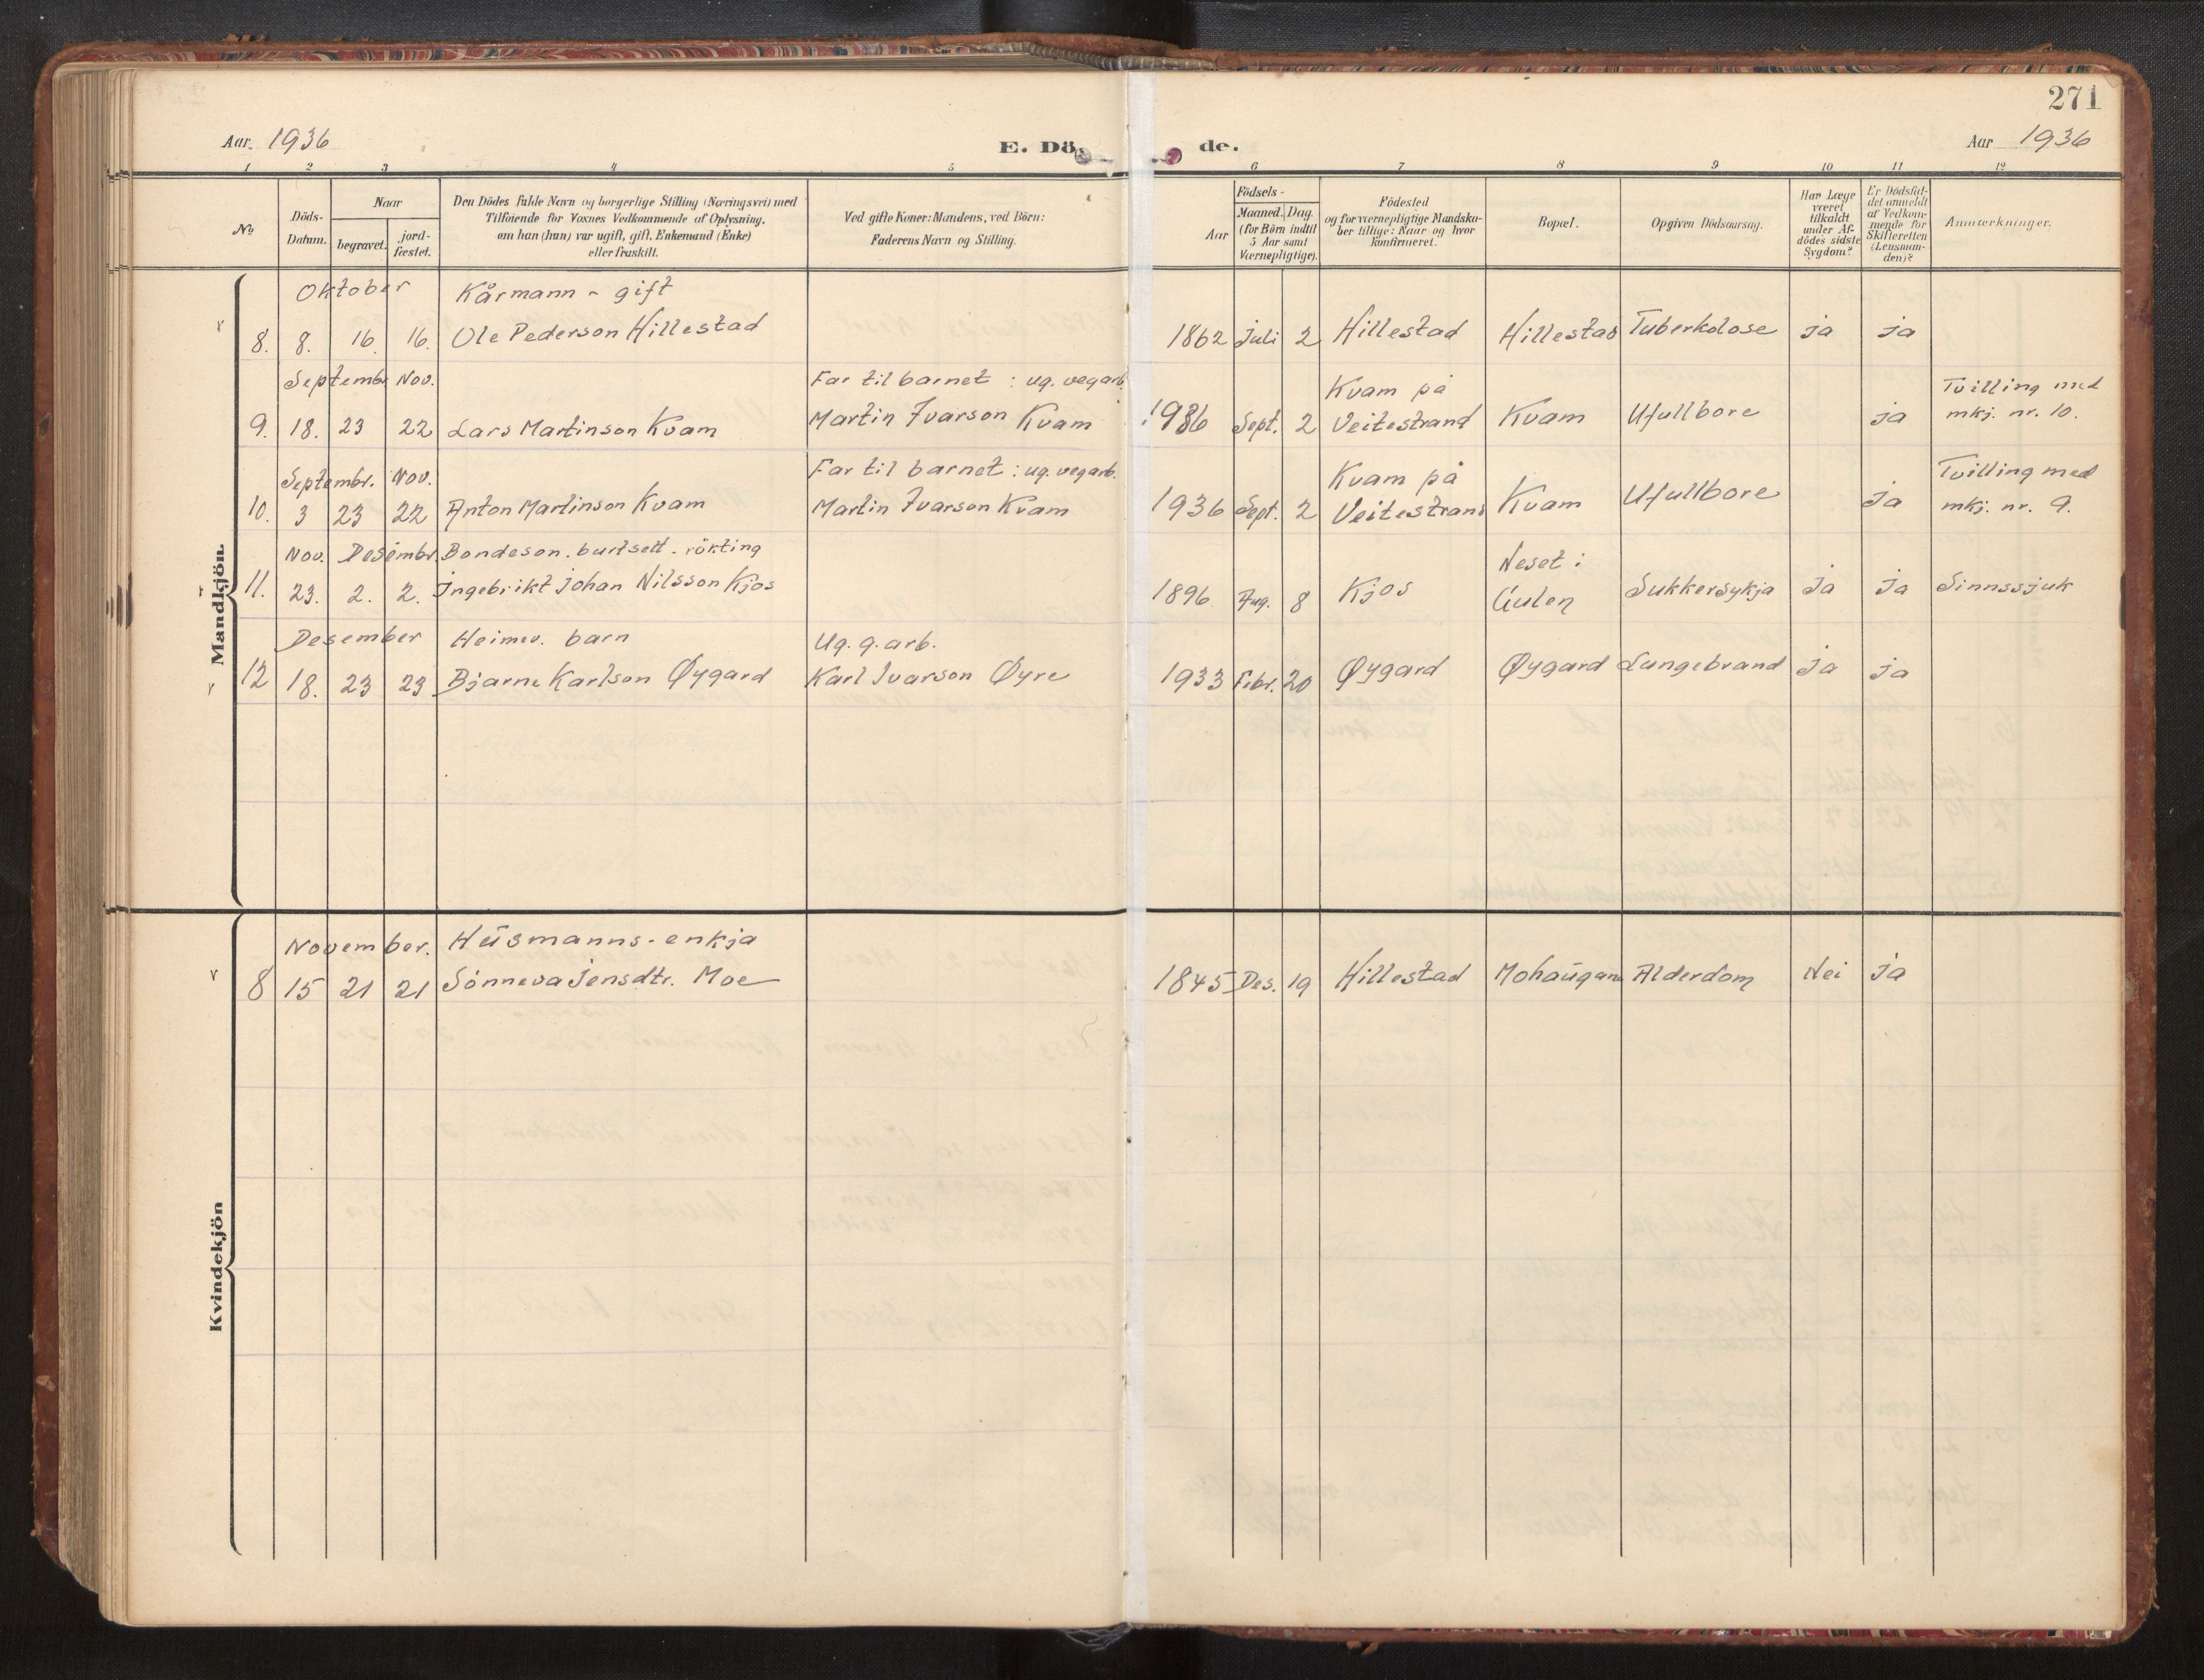 271
Aar 1936
E. Dö de.
Aar 1936
1 2 3 4 5 6 7 8 9 10 11 12
No
Döds-Datum.
Naar
begravet.
jord-fæstet.
Den Dödes fulde Navn og borgerlige Stilling (Næringsvei) med
Tilföiende for Voxnes Vedkommende af Oplysning,
om han (hun) var ugift, gift, Enkemand (Enke)
eller fraskilt.
Ved gifte Koner: Mandens, ved Börn:
Faderens Navn og Stilling.
Aar
Födsels-
Maaned. Dag.
(for Börn indtil
5 Aar samt
Værnepligtige).
Födested
og for værnepligtige Mandska-
ber tillige: Naar og hvor
konfirmeret.
Bopæl.
Opgiven Dödsaarsag.
Har Læge
været
tilkaldt
under Af-
dödes sidste
Sygdom?
Er Dödsfal-
det anmeldt
af Vedkom-
mende for
Skifteretten
(Lensman-
den)?
Anmærkninger.
Mandkjön.
Oktober Kårmann - gift
8. 8. 16. 16. Ole Pederson Hillestad 1862 Juli 2 Hillestad Hillestad Tuberkolose ja ja
Septembr Nov. Far til barnet : ug. vegarb. Kvam på Tvilling med
9. 18. 23 22 Lars Martinson Kvam Martin Ivarson Kvam 1936 Sept. 2 Veitestrand Kvam Ufullbore ja mkj. nr. 10.
Septembr. Nov. Far til barnet : ug. vegarb. Kvam på Tvilling med
10. 3 23 22 Anton Martinson Kvam Martin Ivarson Kvam 1936 Sept. 2 Veitestrand Kvam Ufullbore ja mkj. nr. 9.
Nov. Desembr. Bondeson. burtsett. rökting Neset i
11. 23. 2. 2. Ingebrikt Johan Nilsson Kjos 1896 Aug. 8 Kjos Gulen Sukkersykja Ja Ja Sinnssjuk
Desember Heimev. barn Ug. g.arb.
12 18. 23 23 Bjarne Karlson Øygard Karl Ivarson Øyre 1933 Febr. 20 Øygard Øygard Lungebrand Ja Ja
Kvindekjön
November. Husmanns-enkja
8 15 21 21 Sønneva Jensdtr. Moe 1845 Des. 19 Hillestad Mohaugane Alderdom Nei Ja